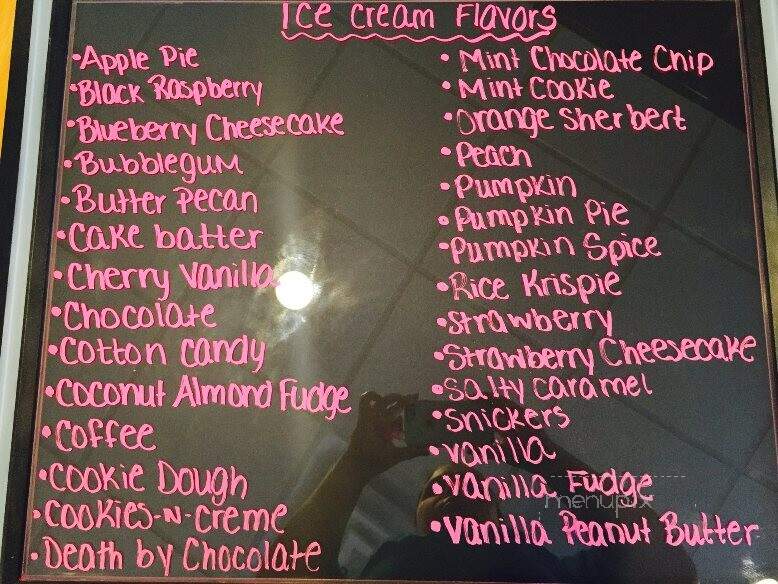 Ice Cream Flavors
•Apple Pie
•Black Raspberry
•Blueberry Cheesecake
•Bubblegum
•Butter Pecan
•Cake batter
•Cherry Vanilla
•Chocolate
•Cotton candy
•Coconut Almond Fudge
•Coffee
•Cookie Dough
•Cookies-N-Creme
•Death by Chocolate
•Mint Chocolate Chip
•Mint Cookie
•Orange Sherbert
•Peach
•Pumpkin
•Pumpkin Pie
•Pumpkin Spice
•Rice Krispie
•Strawberry
•Strawberry Cheesecake
•Salty caramel
•Snickers
•Vanilla
•Vanilla Fudge
menupix
•Vanilla Peanut Butter